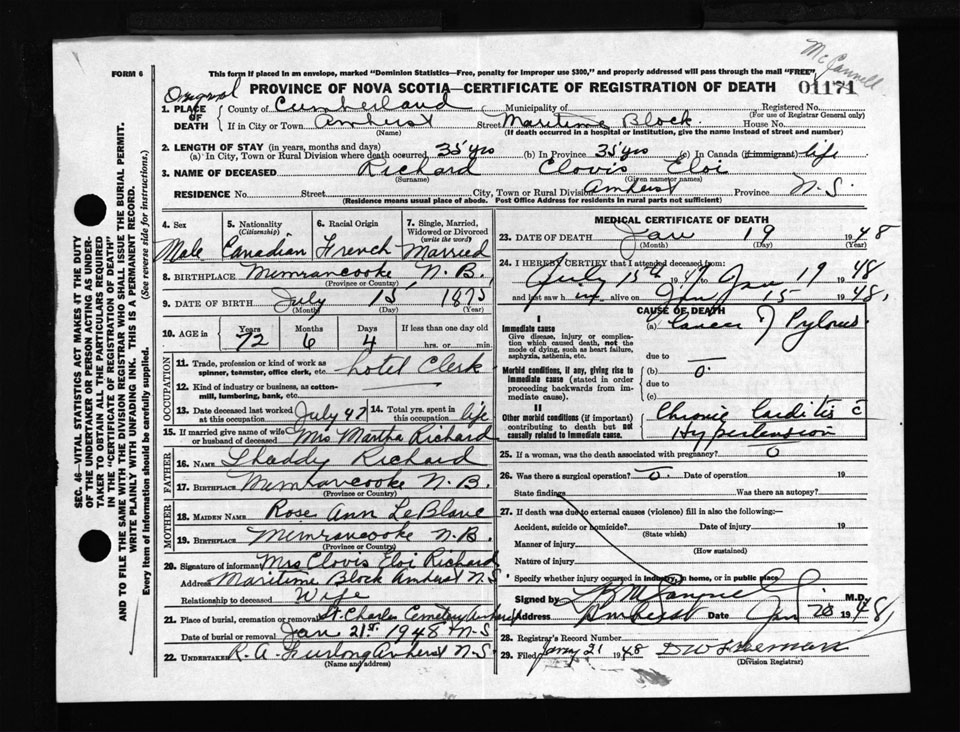 McCannell
FORM 6
This form if placed in an envelope, marked "Dominion Statistics—Free, penalty for improper use $300," and properly addressed will pass through the mail "FREE"
Original
PROVINCE OF NOVA SCOTIA—CERTIFICATE OF REGISTRATION OF DEATH
01171
1. PLACE OF DEATH
County of Cumberland Municipality of Registered No.
(For use of Registrar General only)
If in City or Town Amherst Street Maritime Block House No.
(Name) (If death occurred in a hospital or institution, give the name instead of street and number)
2. LENGTH OF STAY (in years, months and days)
(a) In City, Town or Rural Division where death occurred 35 yrs (b) In Province 35 yrs (c) In Canada (if immigrant) life
3. NAME OF DECEASED Richard Clovis Eloi
(Surname) (Given name or names)
RESIDENCE No. Street City, Town or Rural Division Amherst Province N.S.
(Residence means usual place of abode. Post Office Address for residents in rural parts not sufficient)
4. Sex 5. Nationality (Citizenship) 6. Racial Origin 7. Single, Married, Widowed or Divorced (write the word)
Male Canadian French Married
8. BIRTHPLACE Mimrancooke N.B.
(Province or Country)
9. DATE OF BIRTH July 15, 1875
(Month) (Day) (Year)
10. AGE in Years Months Days If less than one day old
72 6 4 hrs. or min.
OCCUPATION
11. Trade, profession or kind of work as spinner, teamster, office clerk, etc. Hotel Clerk
12. Kind of industry or business, as cotton-mill, lumbering, bank, etc.
13. Date deceased last worked at this occupation July 47 14. Total yrs. spent in this occupation life
15. If married give name of wife or husband of deceased Mrs Martha Richard
FATHER
16. NAME Thaddy Richard
17. BIRTHPLACE Mimrancooke N.B.
(Province or Country)
MOTHER
18. MAIDEN NAME Rose Ann LeBlanc
19. BIRTHPLACE Mimrancooke N.B.
(Province or Country)
20. Signature of informant Mrs Clovis Eloi Richard
Address Maritime Block Amherst N.S
Relationship to deceased Wife
21. Place of burial, cremation or removal St. Charles Cemetery Amherst
Date of burial or removal Jan 21st 1948 N-S
22. UNDERTAKER R.A. Furlong Amherst N.S.
(Name and address)
MEDICAL CERTIFICATE OF DEATH
23. DATE OF DEATH Jan 19 1948
(Month) (Day) (Year)
24. I HEREBY CERTIFY that I attended deceased from:
July 15th 1947 to Jan 19 1948
and last saw him alive on Jan 15 1948,
CAUSE OF DEATH
I
Immediate cause (a) Cancer of Pylorus
Give disease, injury or complication which caused death, not the mode of dying, such as heart failure, asphyxia, asthenia, etc.
due to —
Morbid conditions, if any, giving rise to immediate cause (stated in order proceeding backwards from immediate cause).
(b) 0.
due to
(c)
II
Other morbid conditions (if important) contributing to death but not causally related to immediate cause.
Chronic Carditis c̄
Hypertension
25. If a woman, was the death associated with pregnancy? 0
26. Was there a surgical operation? 0. Date of operation 19
State findings Was there an autopsy?
27. If death was due to external causes (violence) fill in also the following:—
Accident, suicide or homicide? Date of injury 19
(State which)
Manner of injury
(How sustained)
Nature of injury
Specify whether injury occurred in industry, in home, or in public place
Signed by M.D.
Address Amherst Date Jan 20 1948,
28. Registrar's Record Number
29. Filed Jany 21 1948 DW Freeman
(Division Registrar)
SEC. 46—VITAL STATISTICS ACT MAKES IT THE DUTY
OF THE UNDERTAKER OR PERSON ACTING AS UNDER-
TAKER TO OBTAIN ALL THE PARTICULARS REQUIRED
IN THE "CERTIFICATE OF REGISTRATION OF DEATH"
AND TO FILE THE SAME WITH THE DIVISION REGISTRAR WHO SHALL ISSUE THE BURIAL PERMIT.
WRITE PLAINLY WITH UNFADING INK. THIS IS A PERMANENT RECORD.
Every item of information should be carefully supplied. (See reverse side for instructions.)